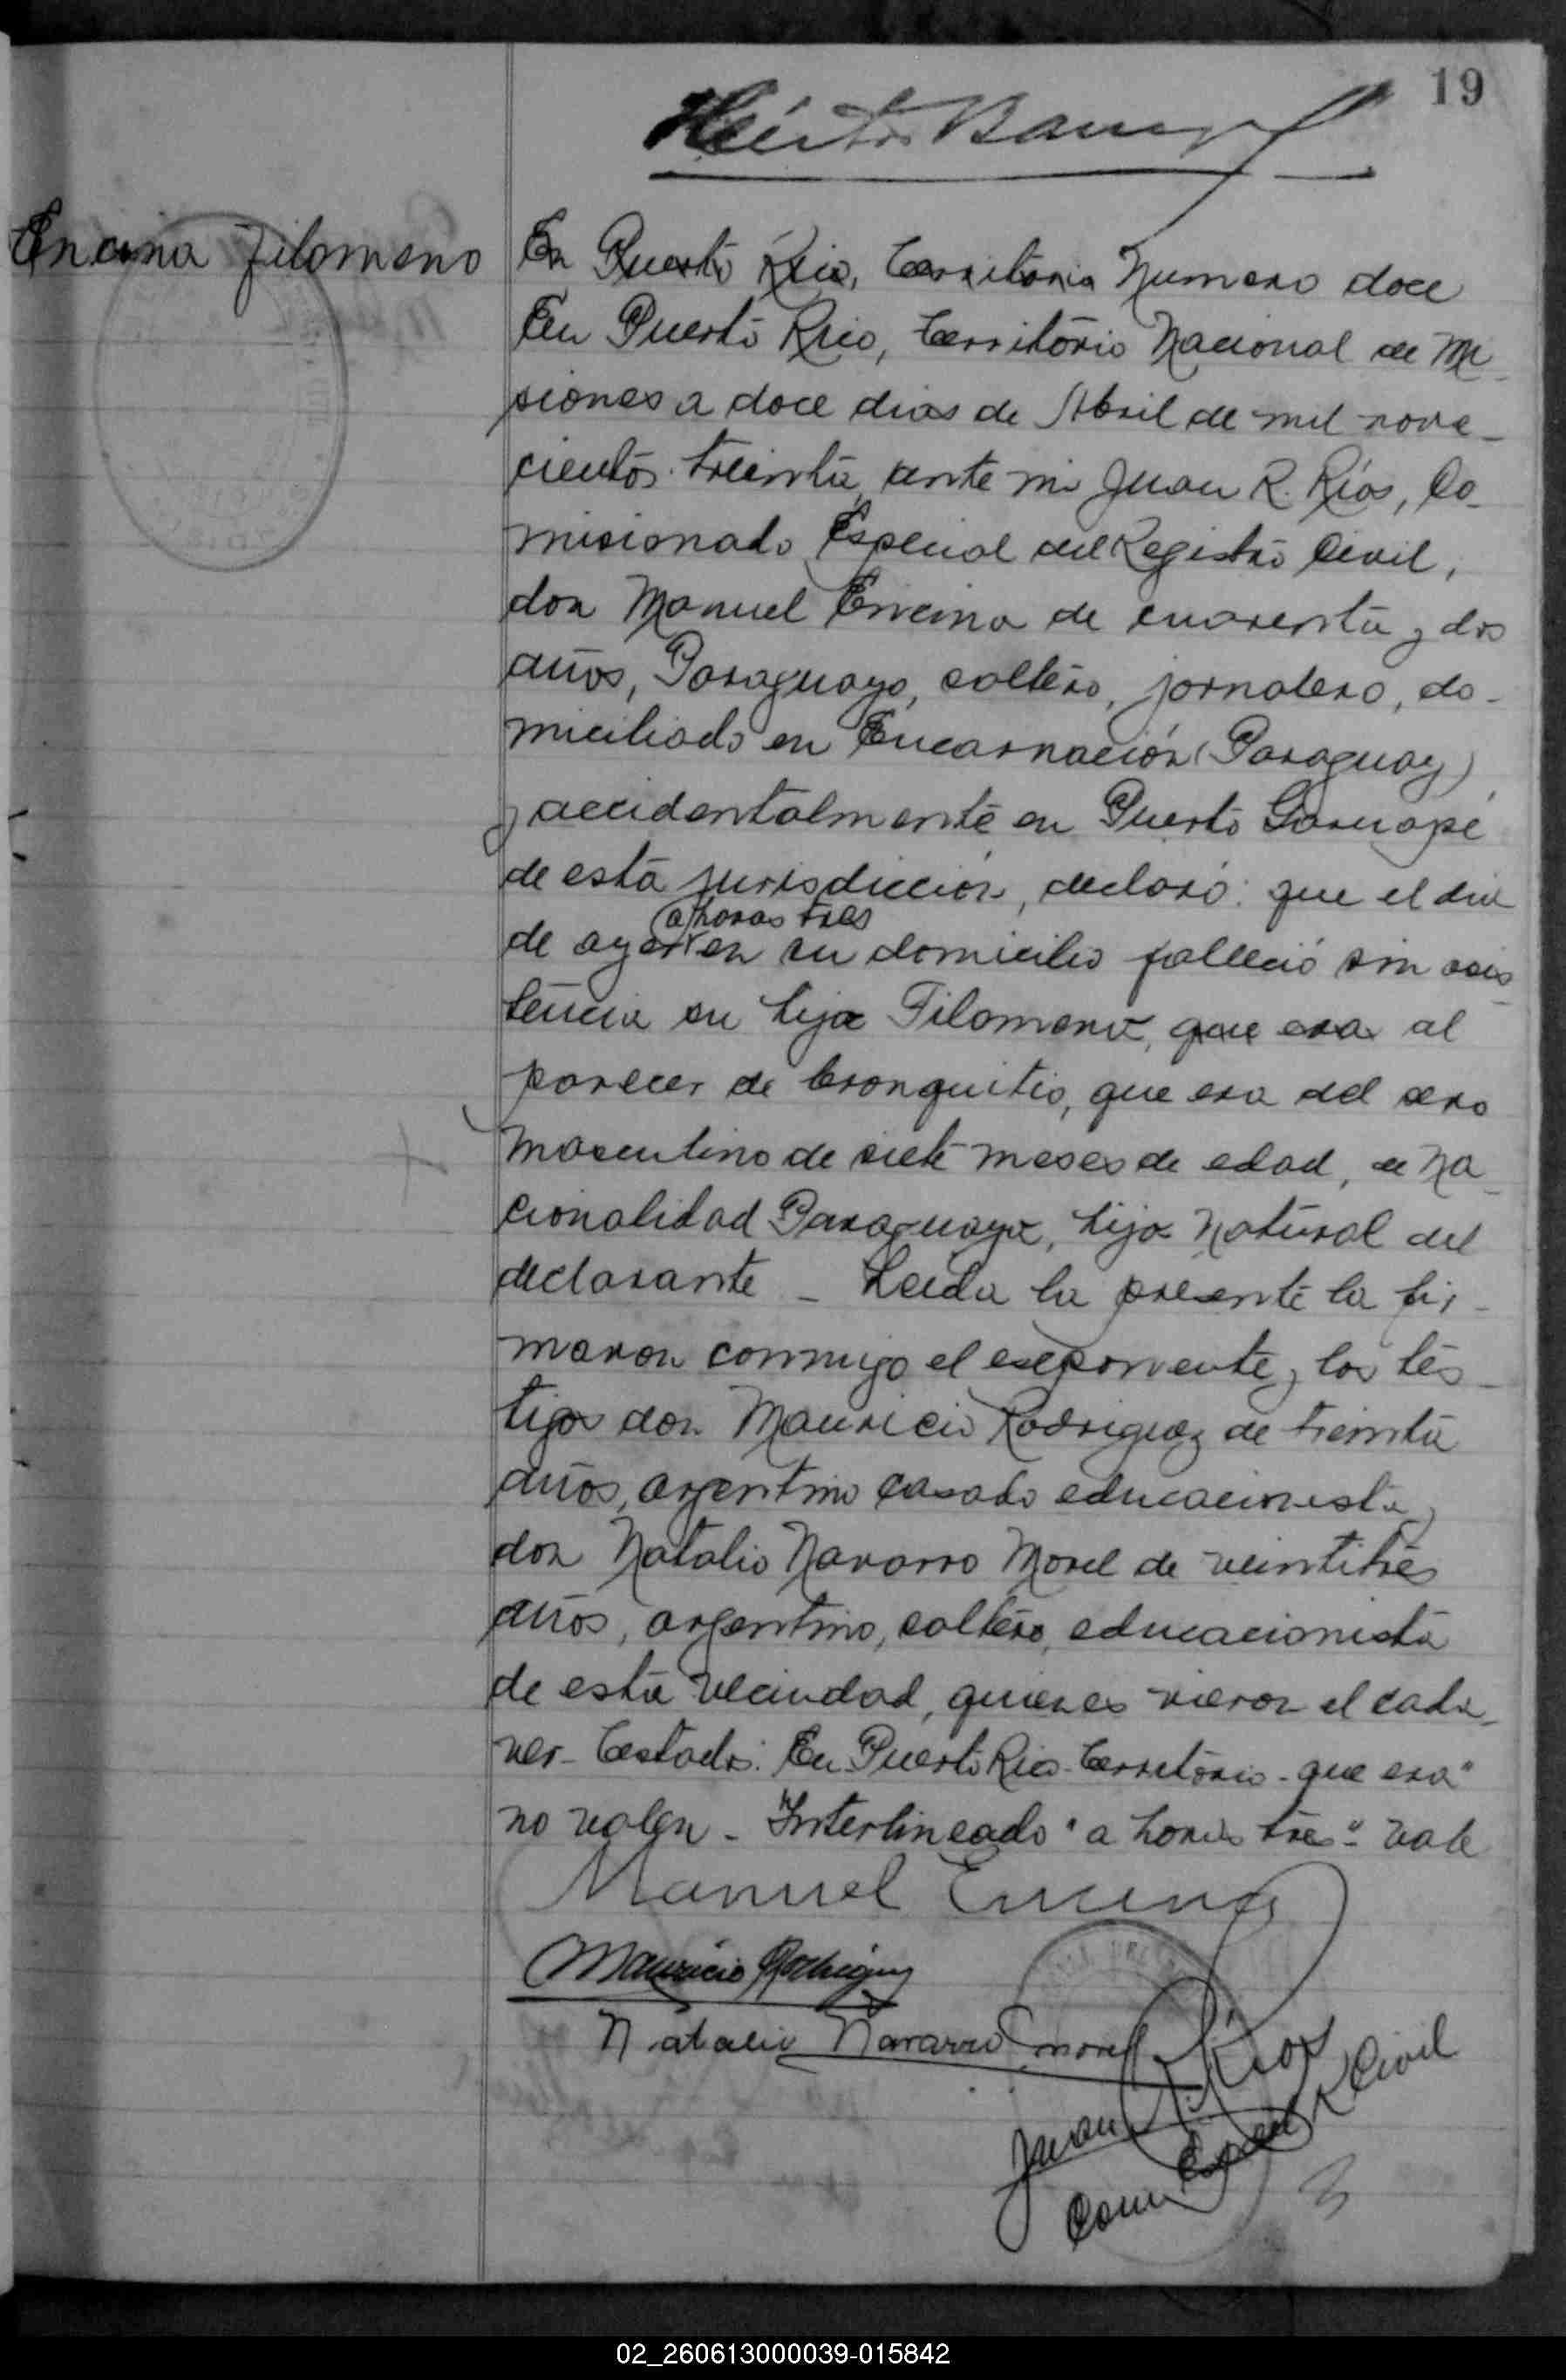 19
Héctor
Encina Filomeno
En Puerto Rico, Territorio Numero doce
En Puerto Rico, Territorio Nacional de Mi_
siones a doce dias de Abril de mil nove_
cientos treinta, ante mi Juan R. Ríos, Co_
misionado Especial del Registro Civil,
don Manuel Encina de cuarenta y dos
años, Paraguayo, soltero, jornalero, do_
miciliado en Encarnación (Paraguay)
y accidentalmente en Puerto Garuapé
de esta jurisdicción, declaró: que el dia
a horas tres
de ayer en su domicilio falleció sin asis_
tencia su hijo Filomeno, que era al
parecer de bronquitis, que era del sexo
masculino de siete meses de edad, de Na_
cionalidad Paraguaya, hijo Natural del
declarante _ Leida la presente la fir_
maron conmigo el exponente y los tes_
tigos don Mauricio Rodriguez de treinta
años, argentino casado educacionista y
don Natalio Navarro Morel de veintitres
años, argentino, soltero, educacionista
de esta vecindad, quienes vieron el cada_
ver_ Testado: En Puerto Rico-Territorio-que era"
no valen_ Interlineado "a horas tres"_ vale
Manuel Encina
Mauricio Rodriguez
Natalio Navarro Morel
Juan R. Ríos
Com Especial R Civil
02_260613000039-015842